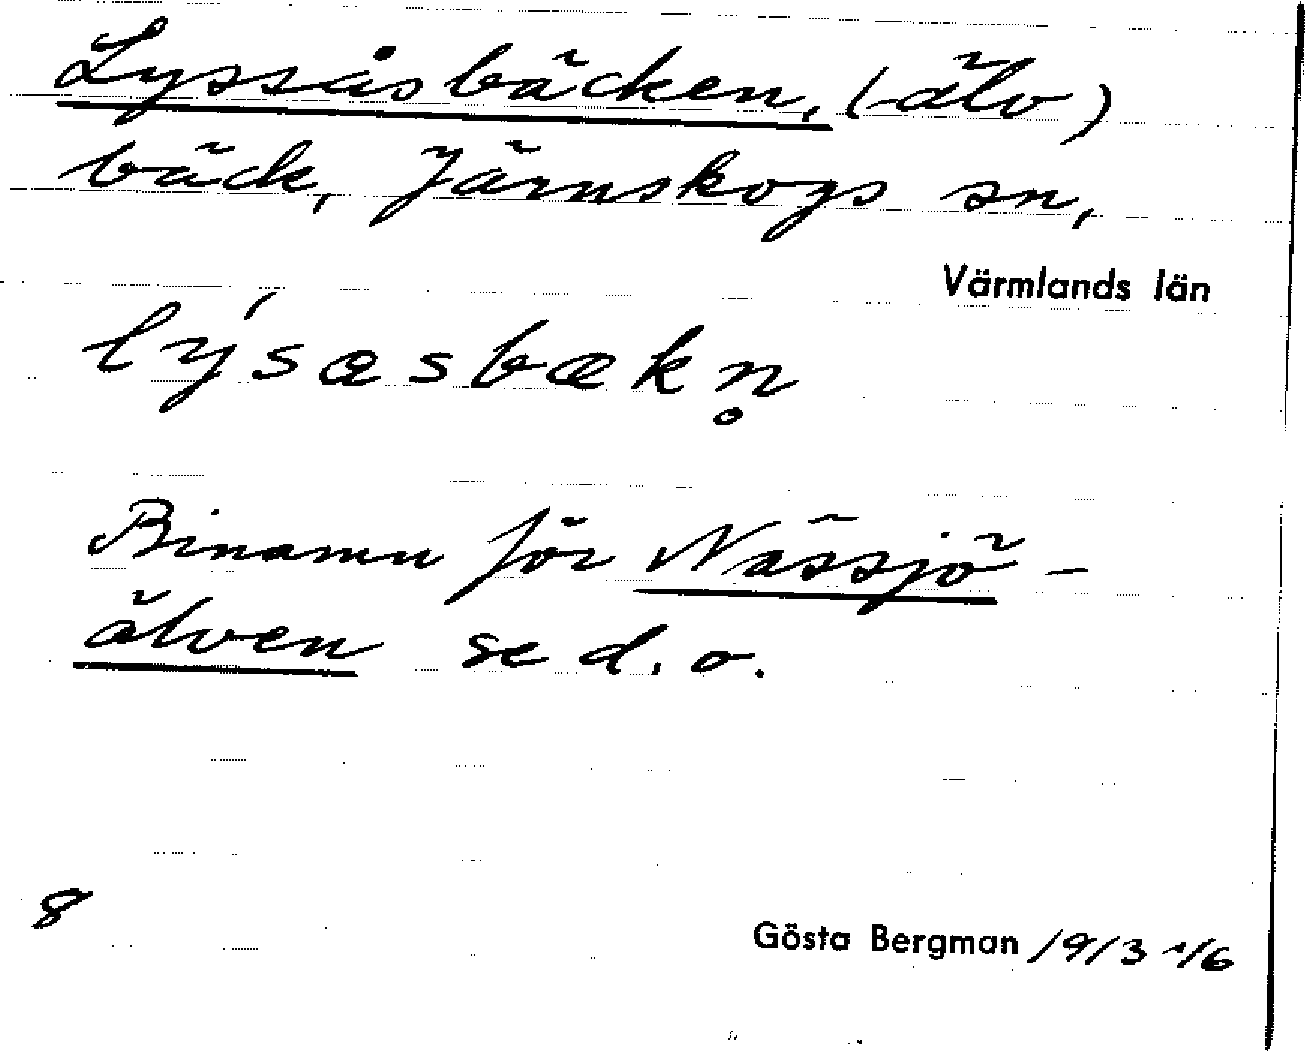 Lyssåsbäcken, (-älv)
bäck, Järnskogs sn,
Värmlands län
lýsæsbækn̥
Binamn för Nässjö-
älven se d. o.
8
Gösta Bergman